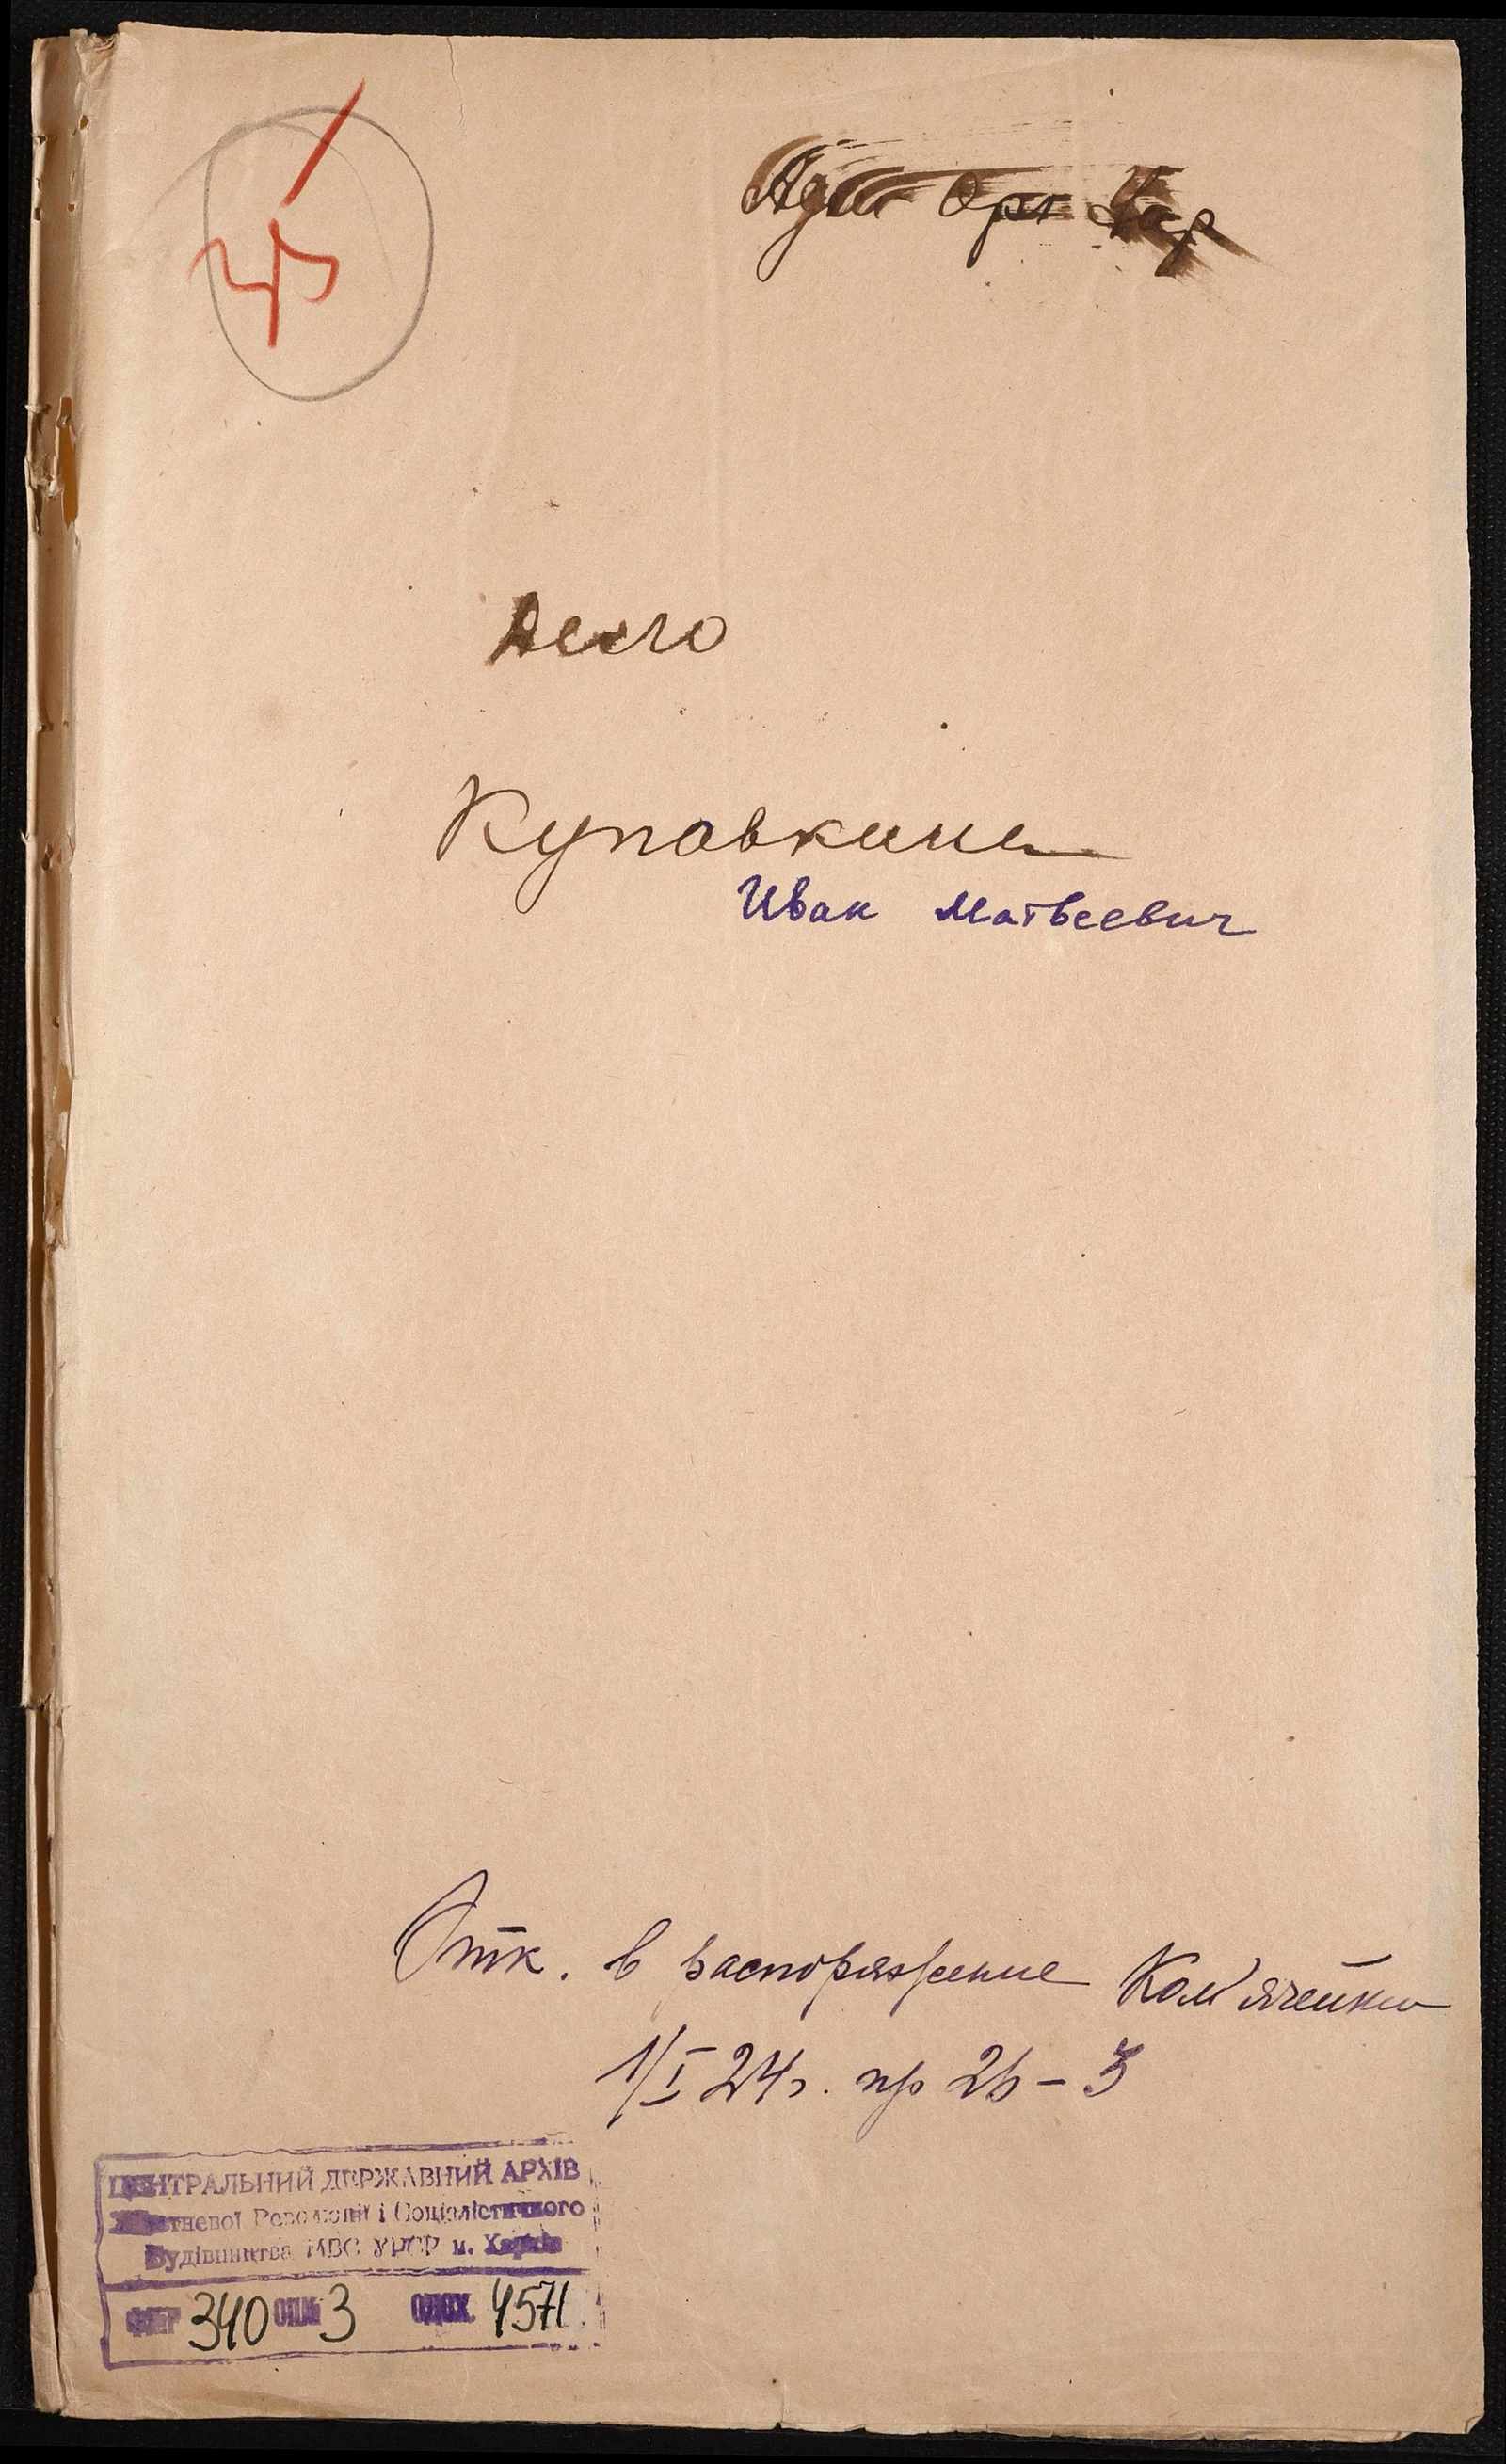 Адм Орг
Дело
Куповкина
Иван Матвеевич
Отк. в распоряжение Ком'ячейки
1/I 24г. пр 26 – 3
ЦЕНТРАЛЬНИЙ ДЕРЖАВНИЙ АРХІВ
Жовтневої Революції і Соціалістичного
Будівництва МВС УРСР м. Харків
ФОНД 340 ОПИС 3 ОД.ЗБ. 4571